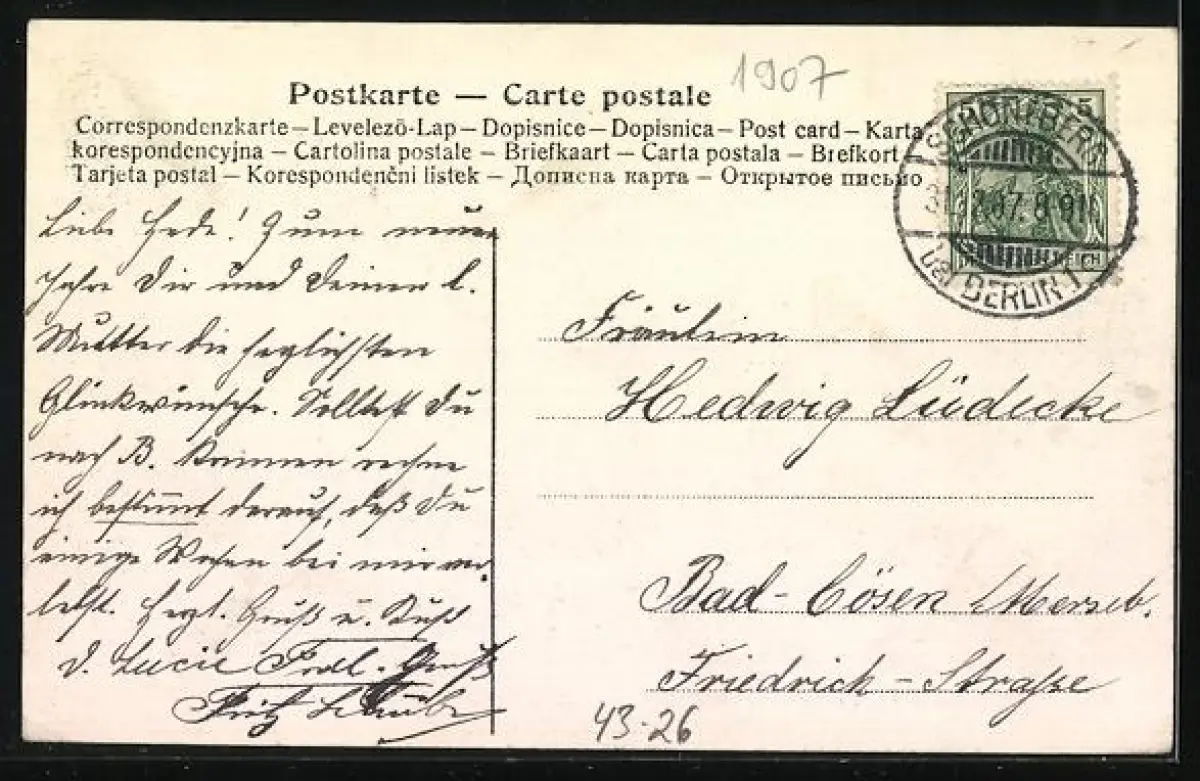 1907
Postkarte — Carte postale
Correspondenzkarte – Levelező-Lap – Dopisnice – Dopisnica – Post card – Karta
korespondencyjna – Cartolina postale – Briefkaart – Carta postala – Brefkort
Tarjeta postal – Korespondenční listek – Дописна карта – Открытое письмо
5
SCHÖNEBERG
31. 07. 8-9N
bei BERLIN 1
REICH
Liebe Hede! Zum neuen
Jahre Dir und Deiner l.
Mutter die herzlichsten
Glückwünsche. Solltest Du
nach B. kommen rechne
ich bestimmt darauf, daß Du
einige Wochen bei mir ver-
lebst. Herzl. Gruß u. Kuß
d. Lucie Frdl. Gruß
Fritz
Fräulein
Hedwig Lüdecke
Bad-Cösen Merseb.
Friedrich-Straße
43-26